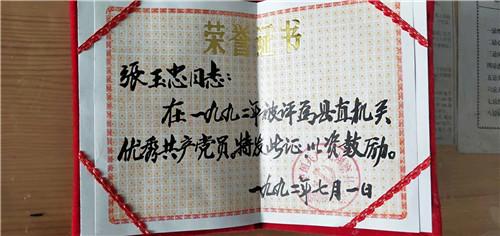 荣誉证书
张玉忠同志：
在一九九二年被评为县直机关
优秀共产党员，特发此证，以资鼓励。
一九九二年七月一日